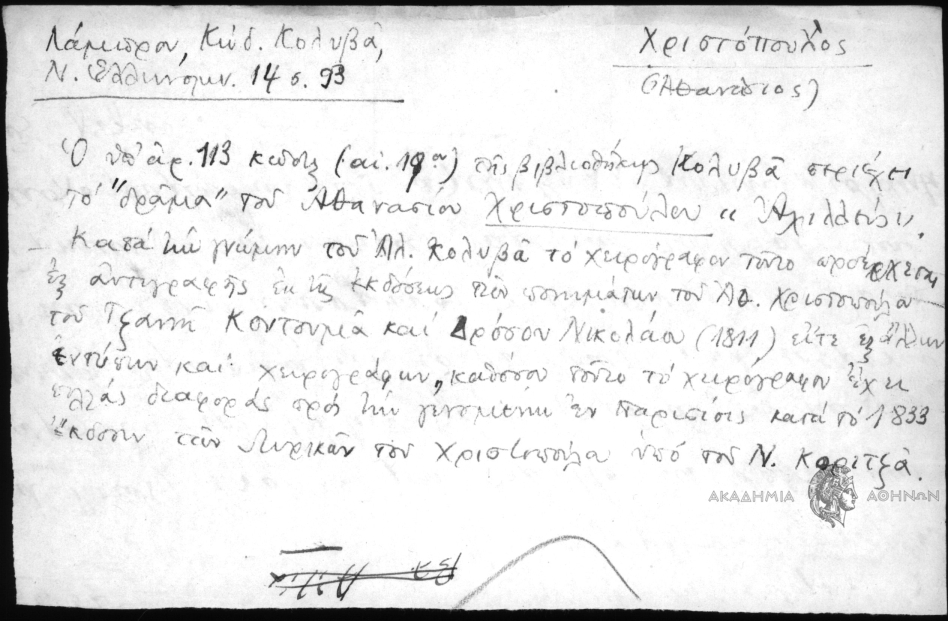 Λάμπρου, Κώδ. Κολυβᾶ,
Ν. Ἑλληνομν. 14 σ. 93
Χριστόπουλος
(Ἀθανάσιος)
Ὁ ὑπ' ἀρ. 113 κῶδιξ (αἰ. 19ου) τῆς βιβλιοθήκης Κολυβᾶ περιέχει
τὸ "δρᾶμα" τοῦ Ἀθανασίου Χριστοπούλου «Ἀχιλλεύς».
Κατὰ τὴν γνώμην τοῦ Ἀλ. Κολυβᾶ τὸ χειρόγραφον τοῦτο προέρχεται
ἐξ ἀντιγραφῆς ἐκ τῆς ἐκδόσεως τῶν ποιημάτων τοῦ Ἀθ. Χριστοπούλου
τοῦ Τζαννῆ Κοντουμᾶ καὶ Δρόσου Νικολάου (1811) εἴτε ἐξ ἄλλων
ἐντύπων καὶ χειρογράφων, καθόσον τοῦτο τὸ χειρόγραφον ἔχει
πολλὰς διαφορὰς πρὸς τὴν γενομένην ἐν Παρισίοις κατὰ τὸ 1833
ἔκδοσιν τῶν Λυρικῶν τοῦ Χριστοπούλου ὑπὸ τοῦ Ν. Κοριτζᾶ.
ΑΚΑΔΗΜΙΑ ΑΘΗΝΩΝ